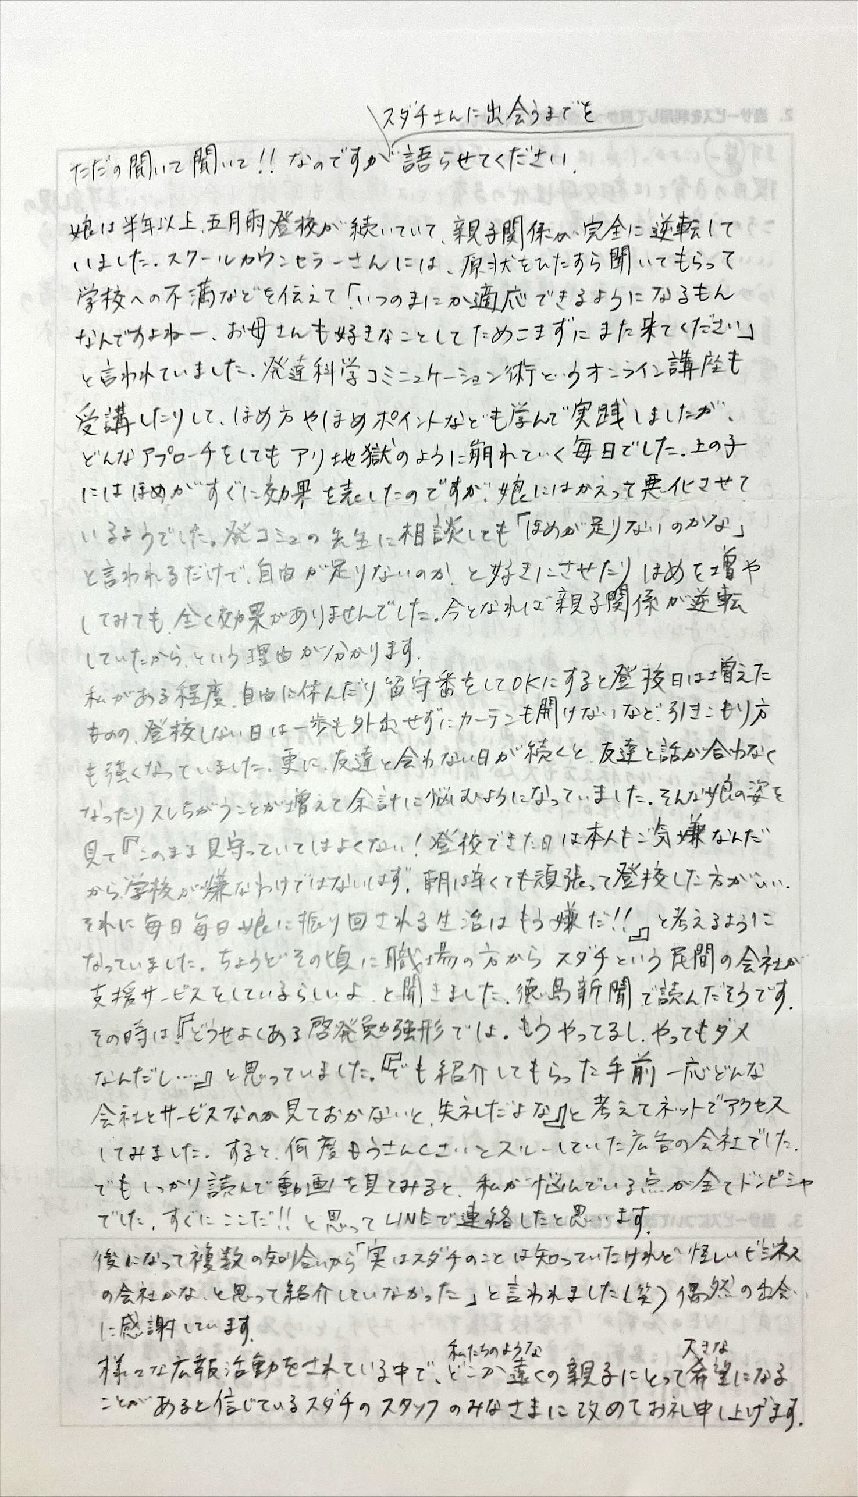 スダチさんに出会うまでを
ただの聞いて聞いて!! なのですが 語らせてください.
娘は半年以上、五月雨登校が続いていて、親子関係が完全に逆転して
いました. スクールカウンセラーさんには、原状をひたすら聞いてもらって
学校への不満などを伝えて「いつのまにか適応できるようになるもん
なんですよねー、お母さんも好きなことしてためこまずにまた来てください」
と言われていました. 発達科学コミニュケーション術というオンライン講座も
受講したりして、ほめ方やほめポイントなども学んで実践しましたが、
どんなアプローチをしてもアリ地獄のように崩れていく毎日でした. 上の子
にはほめがすぐに効果を表したのですが、娘にはかえって悪化させて
いるようでした。発コミュの先生に相談しても「ほめが足りないのかな」
と言われるだけで、自由が足りないのか、と好きにさせたりほめを増や
してみても、全く効果がありませんでした. 今となれば親子関係が逆転
していたから、という理由が分かります.
私がある程度、自由に休んだり留守番をしてOKにすると登校日は増えた
ものの、登校しない日は一歩も外れせずにカーテンも開けないなど、引きこもり方
も強くなっていました. 更に、友達と会わない日が続くと、友達と話が合わなく
なったりスレちがうことが増えて余計に悩むようになっていました. そんな娘の姿を
見て『このまま見守っていてはよくない! 登校できた日は本人もご気嫌なんだ
から、学校が嫌なわけではないはず. 朝は辛くても頑張って登校した方がいい.
それに毎日毎日娘に振り回される生活はもう嫌だ!!』と考えるように
なっていました. ちょうどその頃に職場の方からスダチという民間の会社が
支援サービスをしているらしいよ、と聞きました. 徳島新聞で読んだそうです.
その時は『どうせよくある啓発勉強形では。もうやってるし、やってもダメ
なんだし……』と思っていました.『でも紹介してもらった手前一応どんな
会社とサービスなのか見ておかないと、失礼だよな』と考えてネットでアクセス
してみました. すると、何度もうさんくさいとスルーしていた広告の会社でした.
でもしっかり読んで動画を見てみると、私が悩んでいる点が全てドンピシャ
でした. すぐにここだ!! と思ってLINEで連絡したと思います.
後になって複数の知り合いから「実はスダチのことは知っていたけれど怪しいビジネス
の会社かな、と思って紹介していなかった」と言われました(笑) 偶然の出会い
に感謝しています.
様々な広報活動をされている中で、私たちのようなどこか遠くの親子にとって大きな希望になる
ことがあると信じているスダチのスタッフのみなさまに改めてお礼申し上げます.